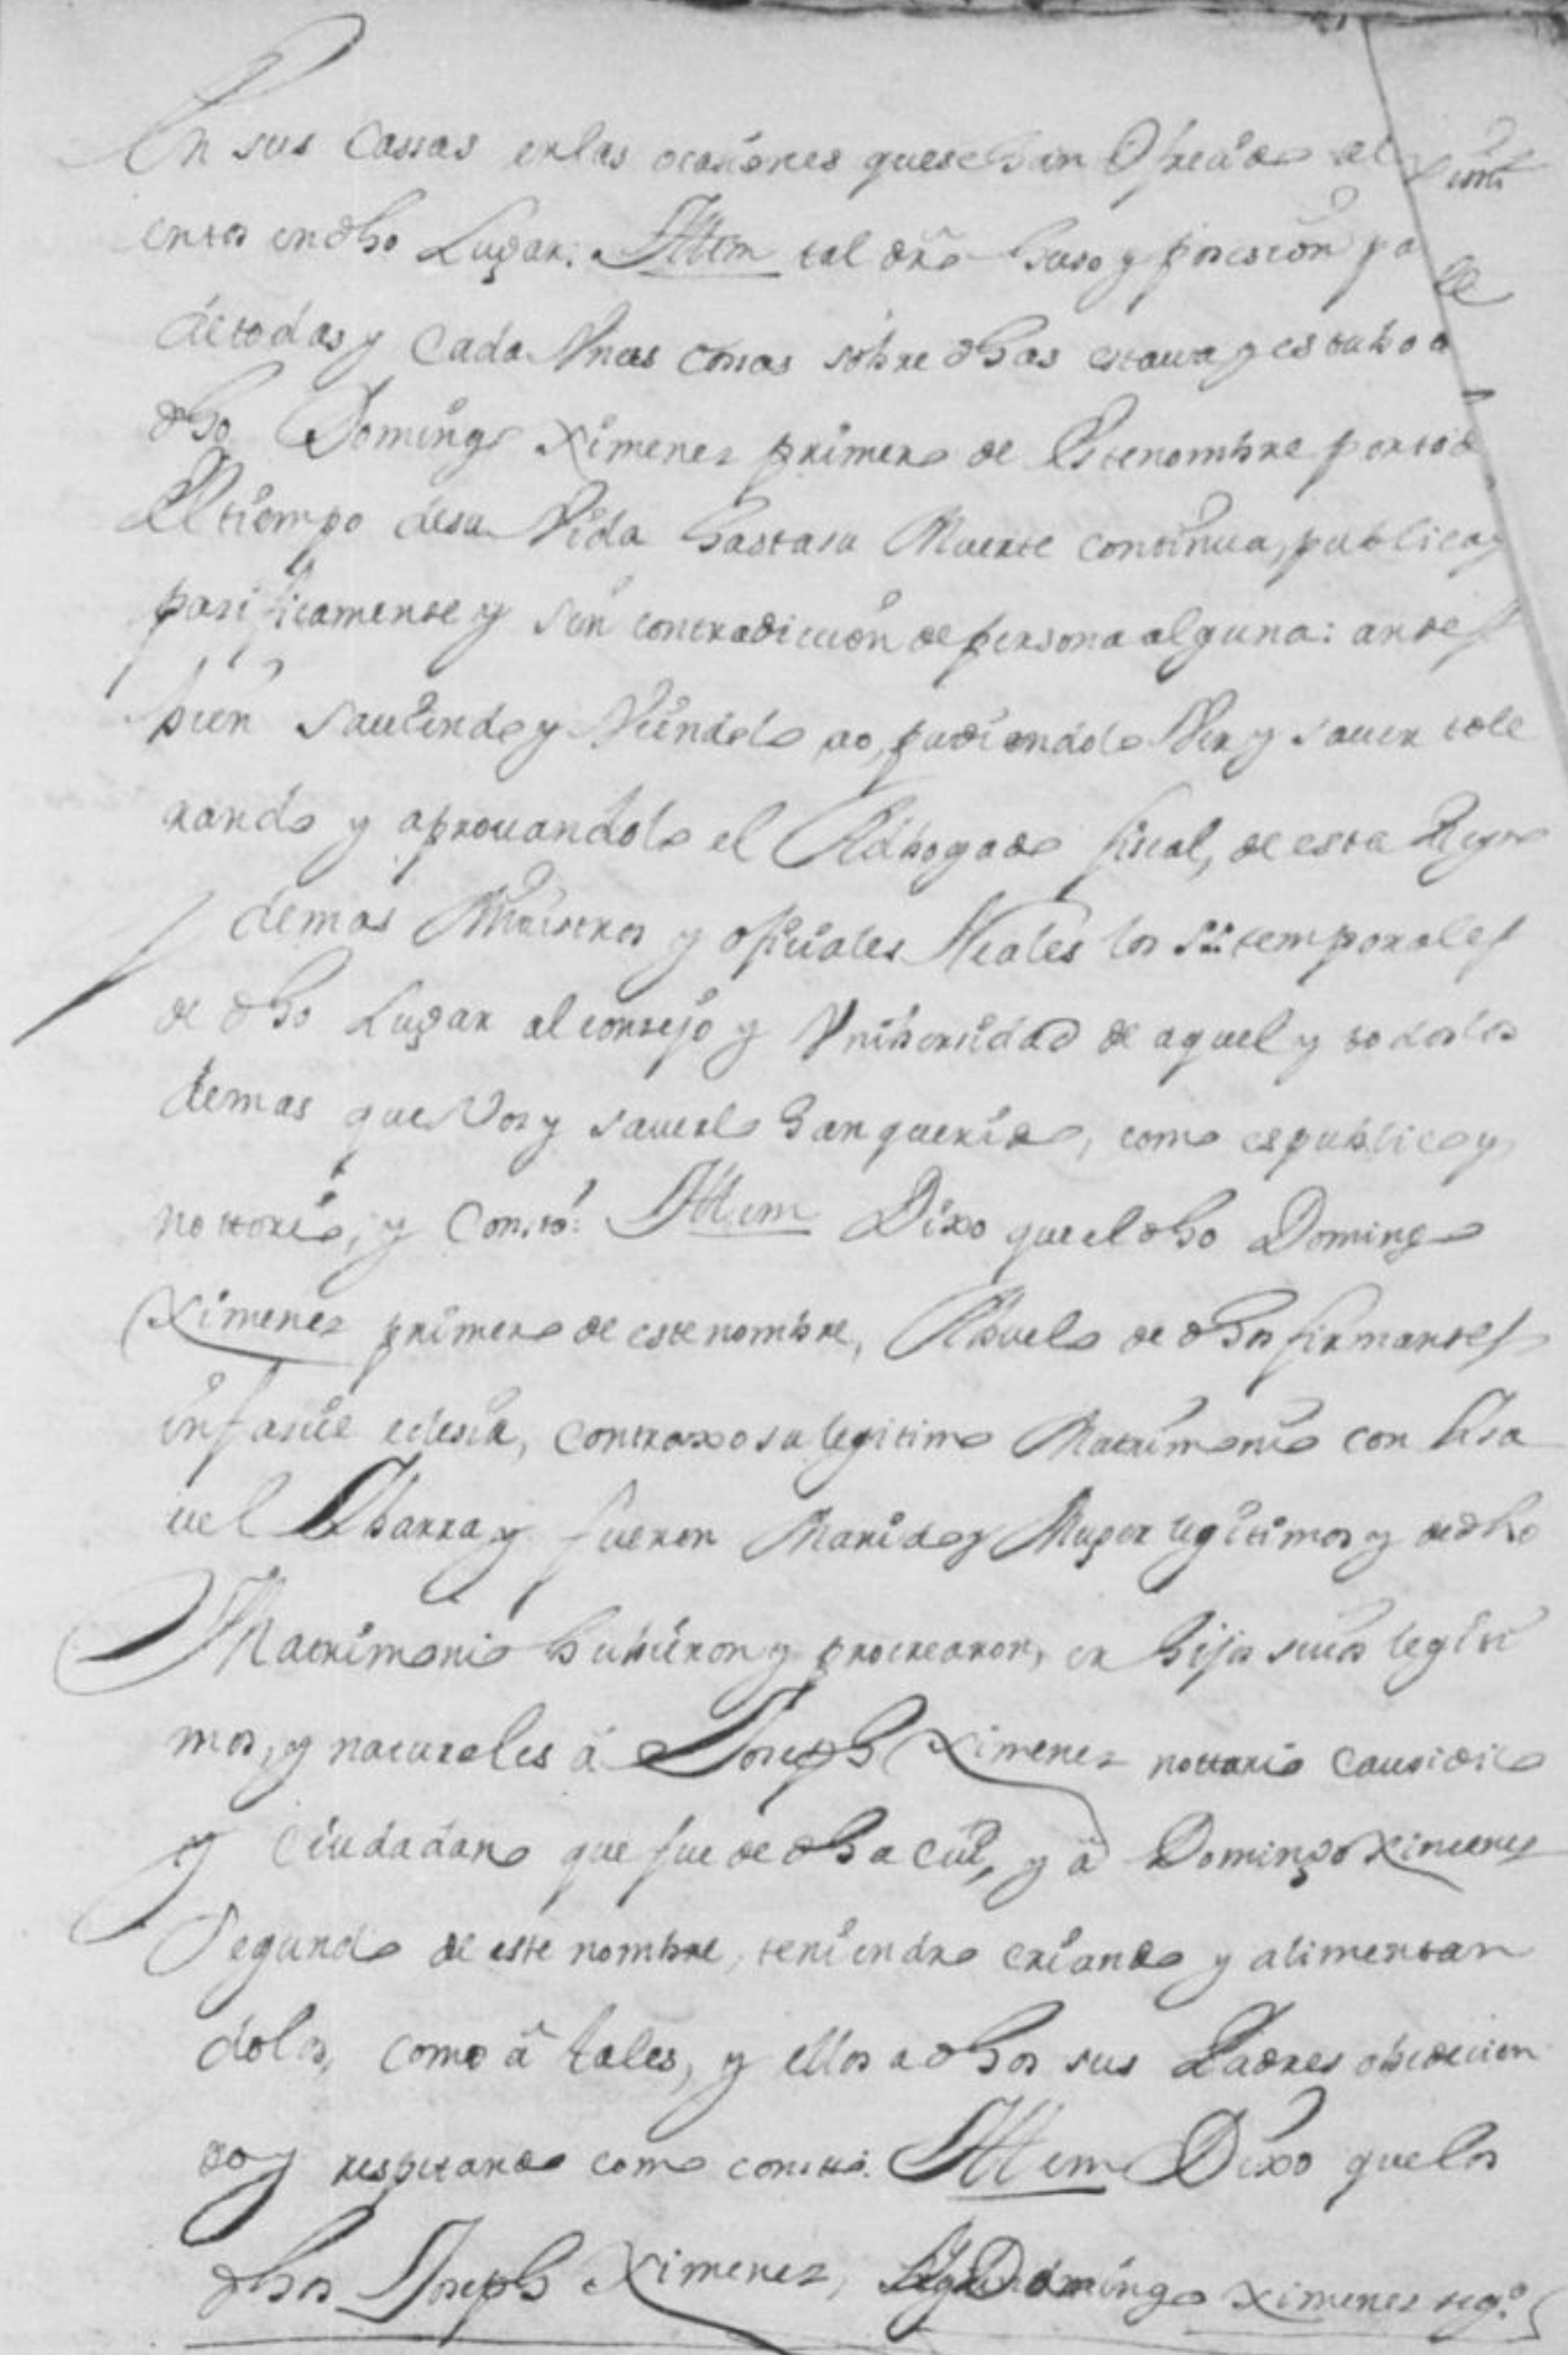 En sus Cassas en las ocasiones que se han Ofrecido al
entos en dho Lugar: Ittem tal dro huso y posesion pa
de todas y Cada Unas cossas sobre dhas estaua y estubo a
dho Domingo Ximenez primero de Este nombre por tod
El tiempo de su Vida hasta su Muerte continua, publica y
pacificamente y sin contradiccion de persona alguna: antes
bien sauiendo y Viendolo no, pudiendolo Ver y sauer tole
rando y aprouandolo el Adbogado fiscal, de este Reyno
demas Ministros y oficiales Reales los SSs temporales
de dho Lugar al consejo y Vnibersidad de aquel y todos los
demas que Ver y sauerlo han querido, como es publico y
nottorio, y Constó: Ittem Dixo que el dho Domingo
Ximenez primero de este nombre, Abuelo de dhos firmantes
in facie eclesia, contraxo su legitimo Matrimonio con Isa
uel Ybarra y fueron Marido y Muger legitimos y de dho
Matrimonio hubieron y procrearon, en hijos suios legiti
mos, y naturales á Joseph Ximenez nottario Causidico
y Ciudadano que fue de dha Ciud, y à Domingo Ximenez
Segundo de este nombre teniendo criando y alimentan
dolos, como à tales, y ellos a dhos sus Padres obedecien
do y respetando como consta. Ittem Dixo que los
dhos Joseph Ximenez, Domingo Ximenez segº